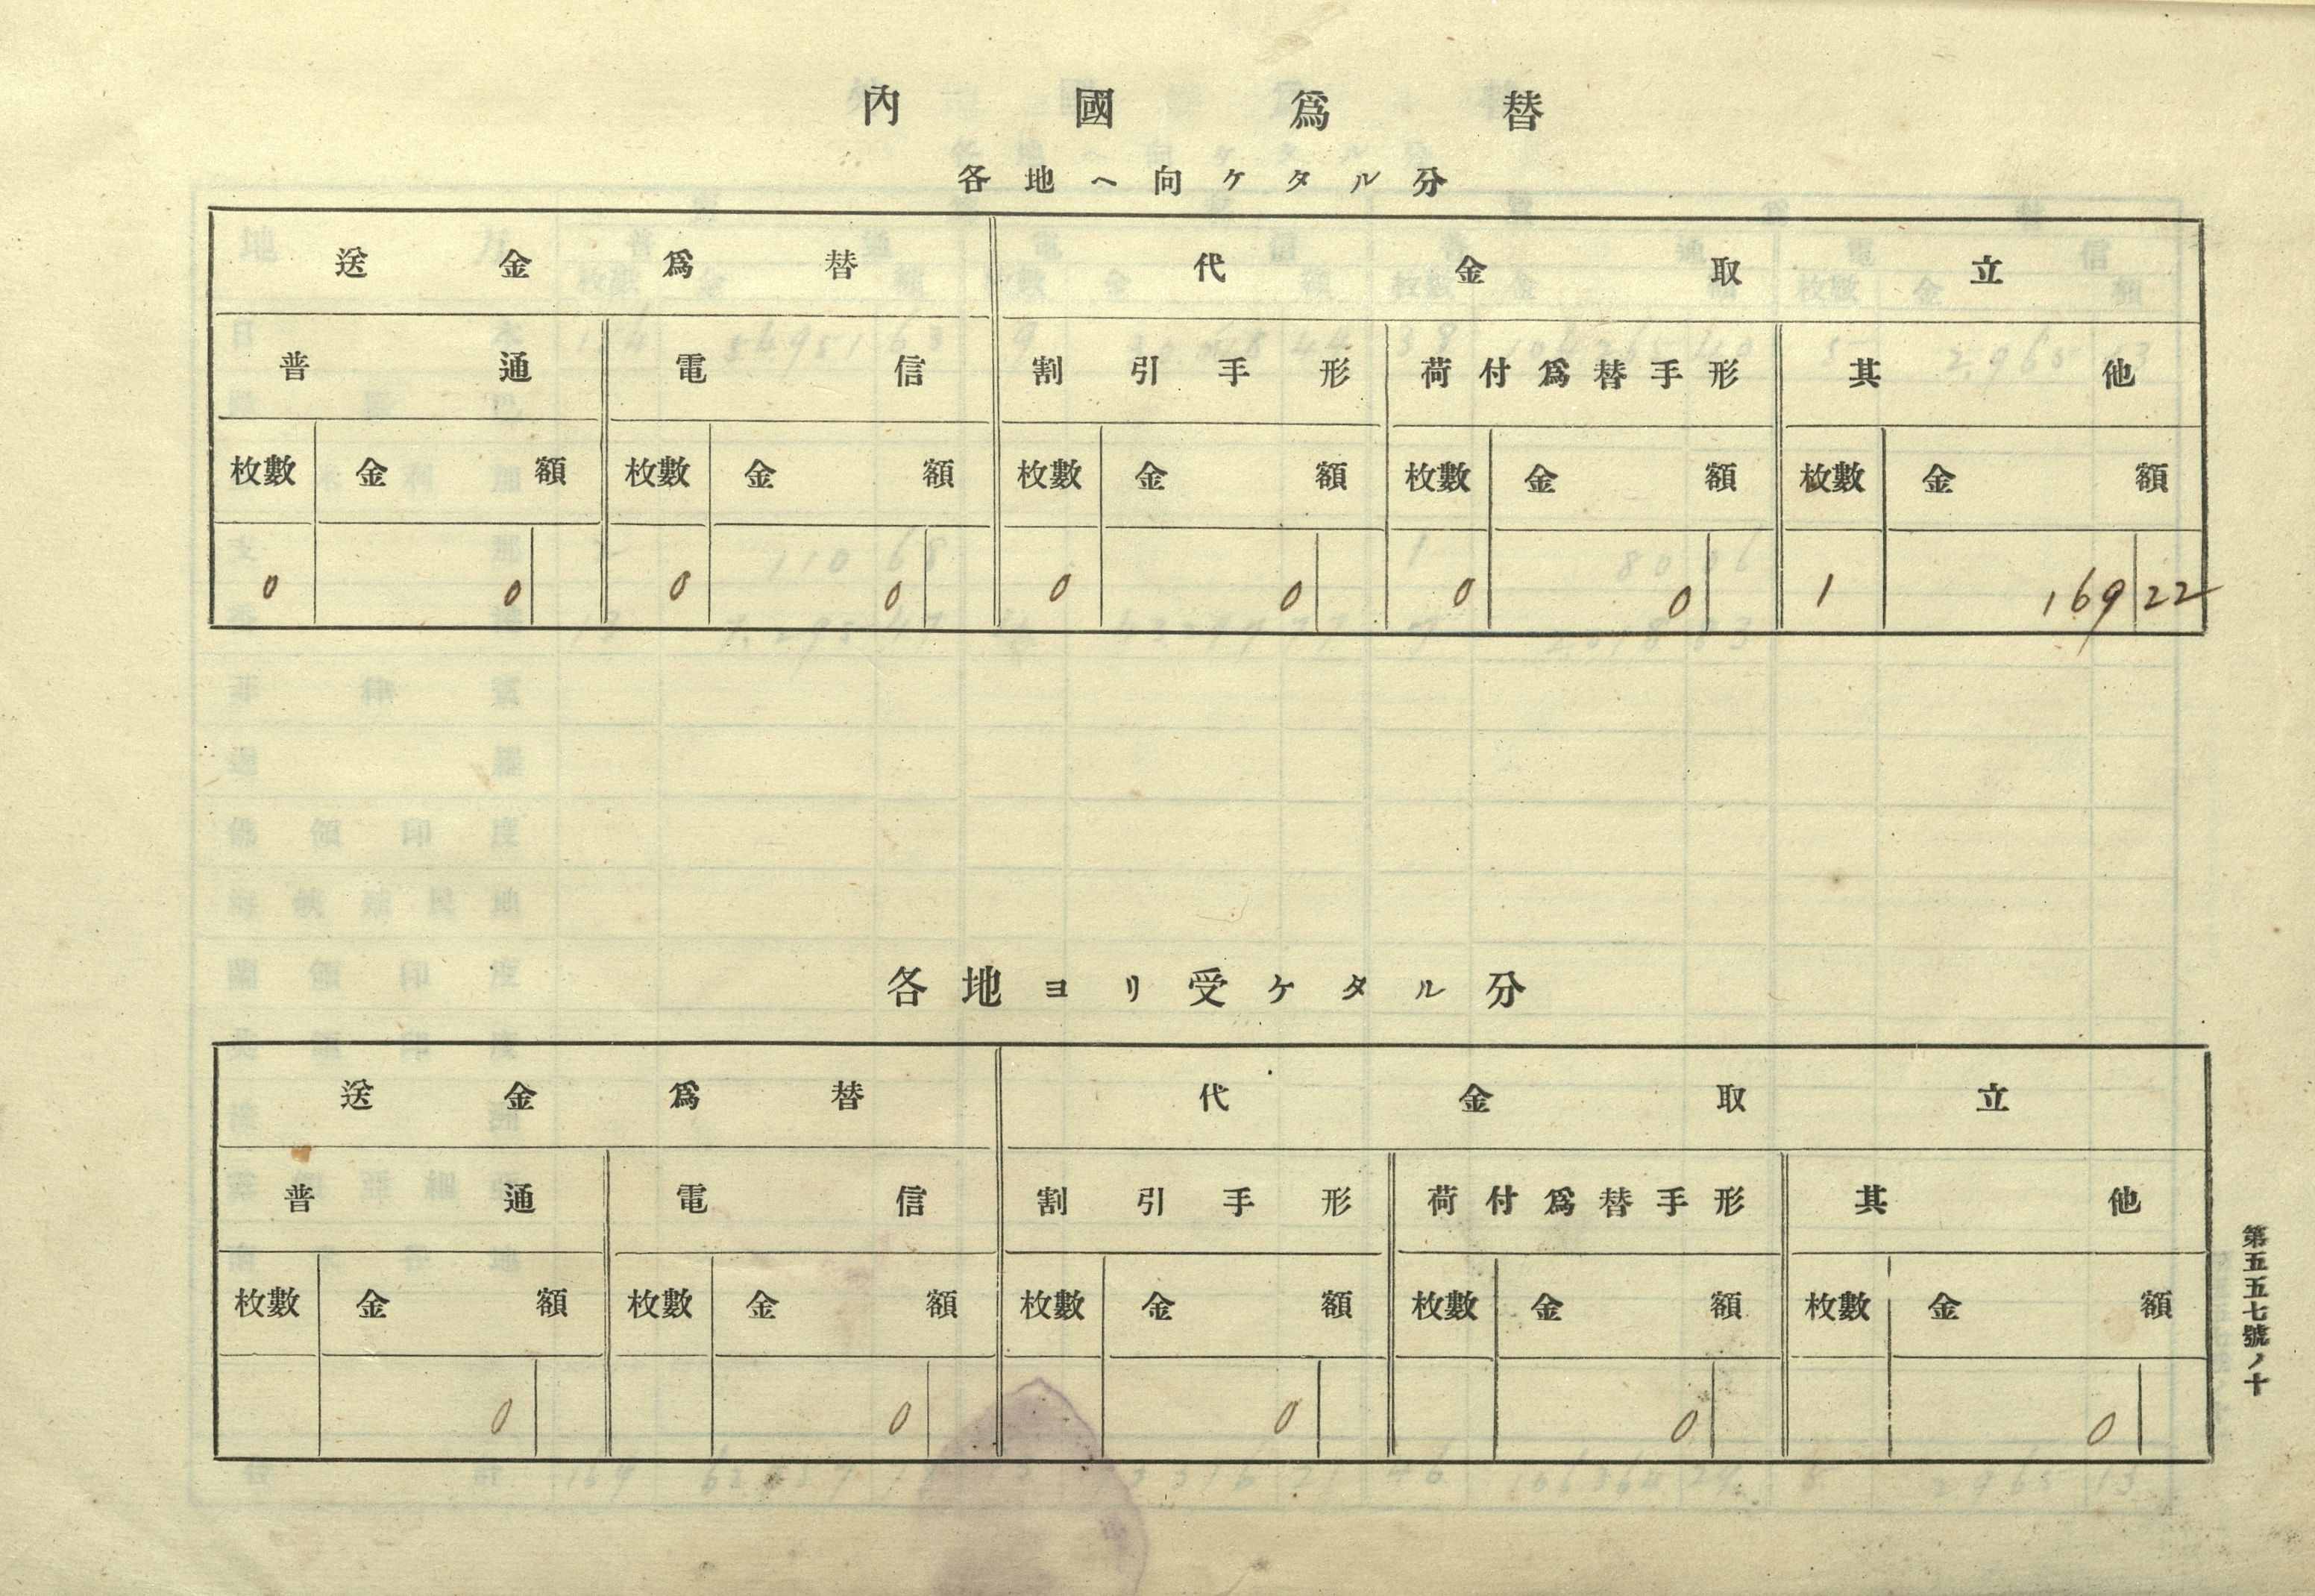 內國爲替
各地ヘ向ケタル分
送金爲替 代金取立
普通 電信 割引手形 荷付爲替手形 其他
枚數 金額 枚數 金額 枚數 金額 枚數 金額 枚數 金額
0 0 0 0 0 0 0 0 1 169 22
各地ヨリ受ケタル分
送金爲替 代金取立
普通 電信 割引手形 荷付爲替手形 其他
枚數 金額 枚數 金額 枚數 金額 枚數 金額 枚數 金額
0 0 0 0 0
第五五七號ノ十